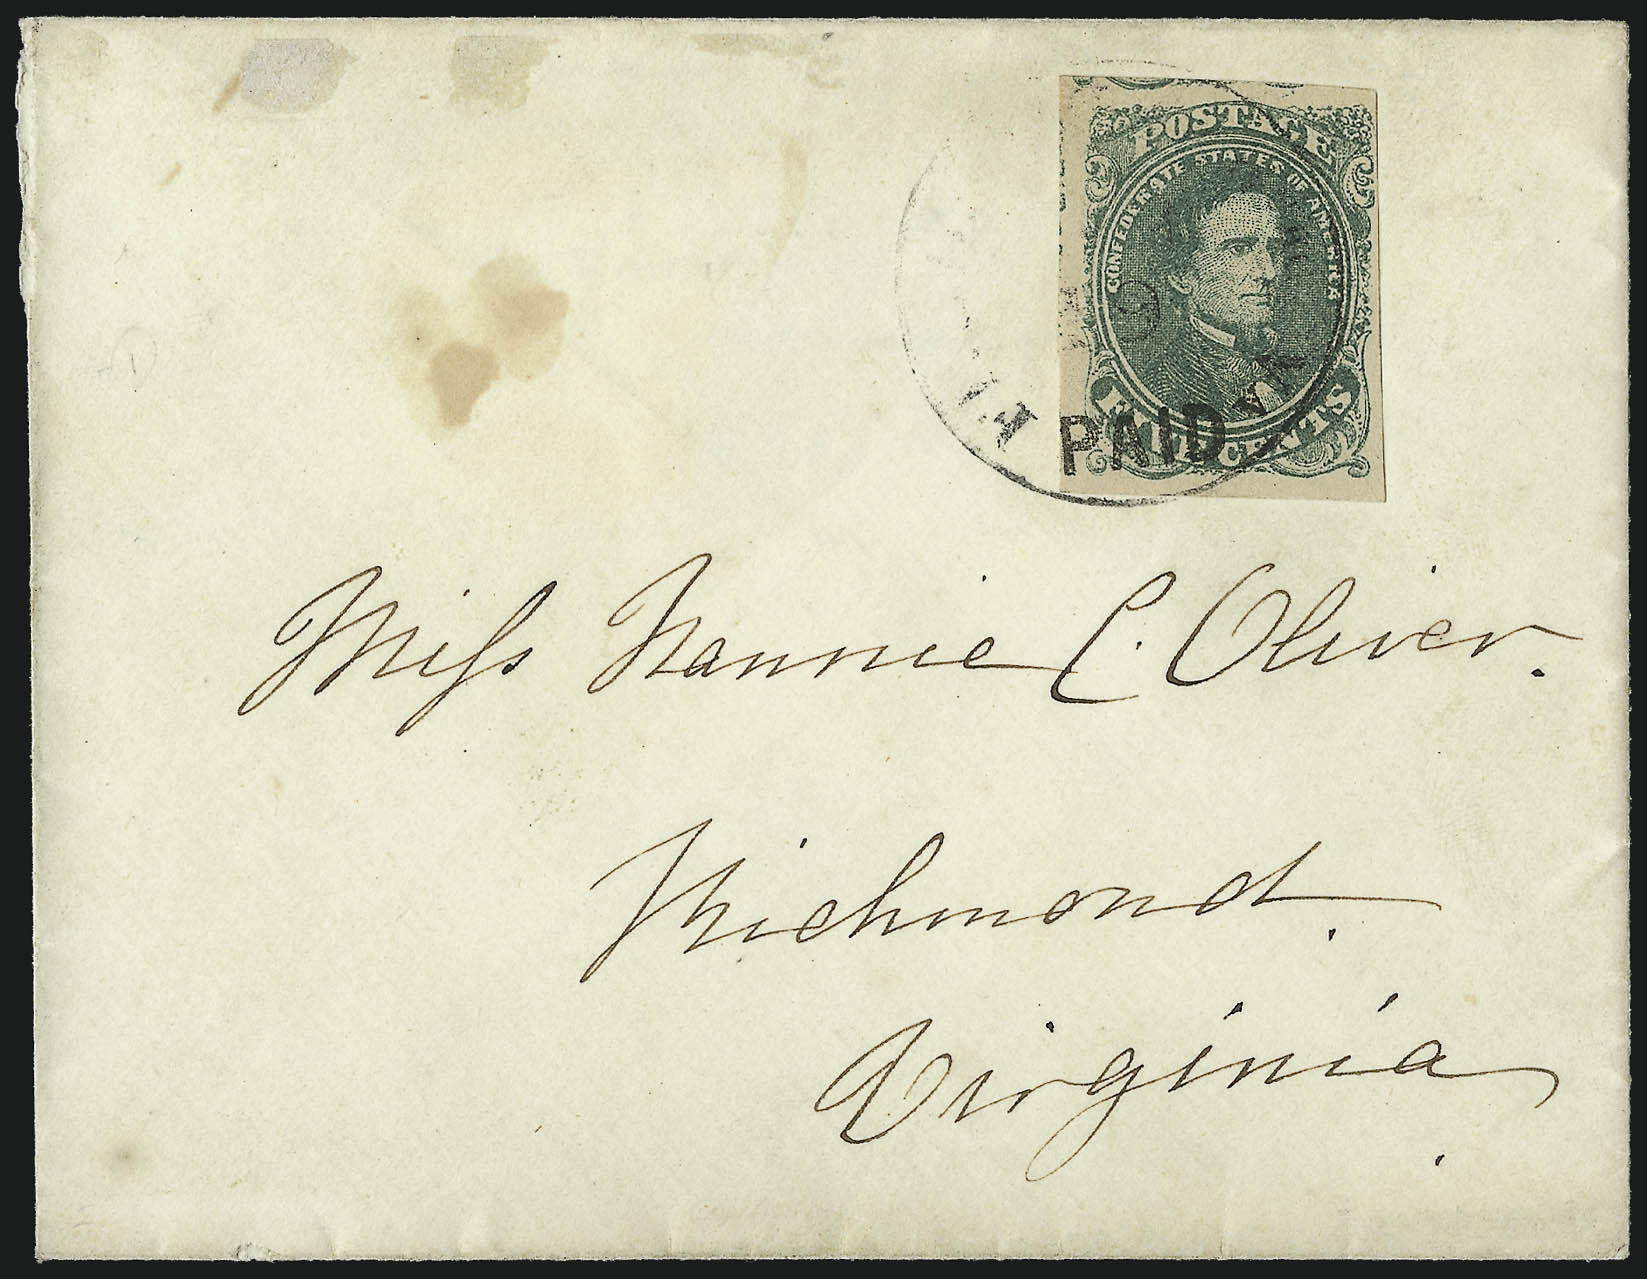 POSTAGE
CONFEDERATE STATES OF AMERICA
FIVE CENTS
PAID
Miss Nannie C. Oliver.
Richmond.
Virginia.